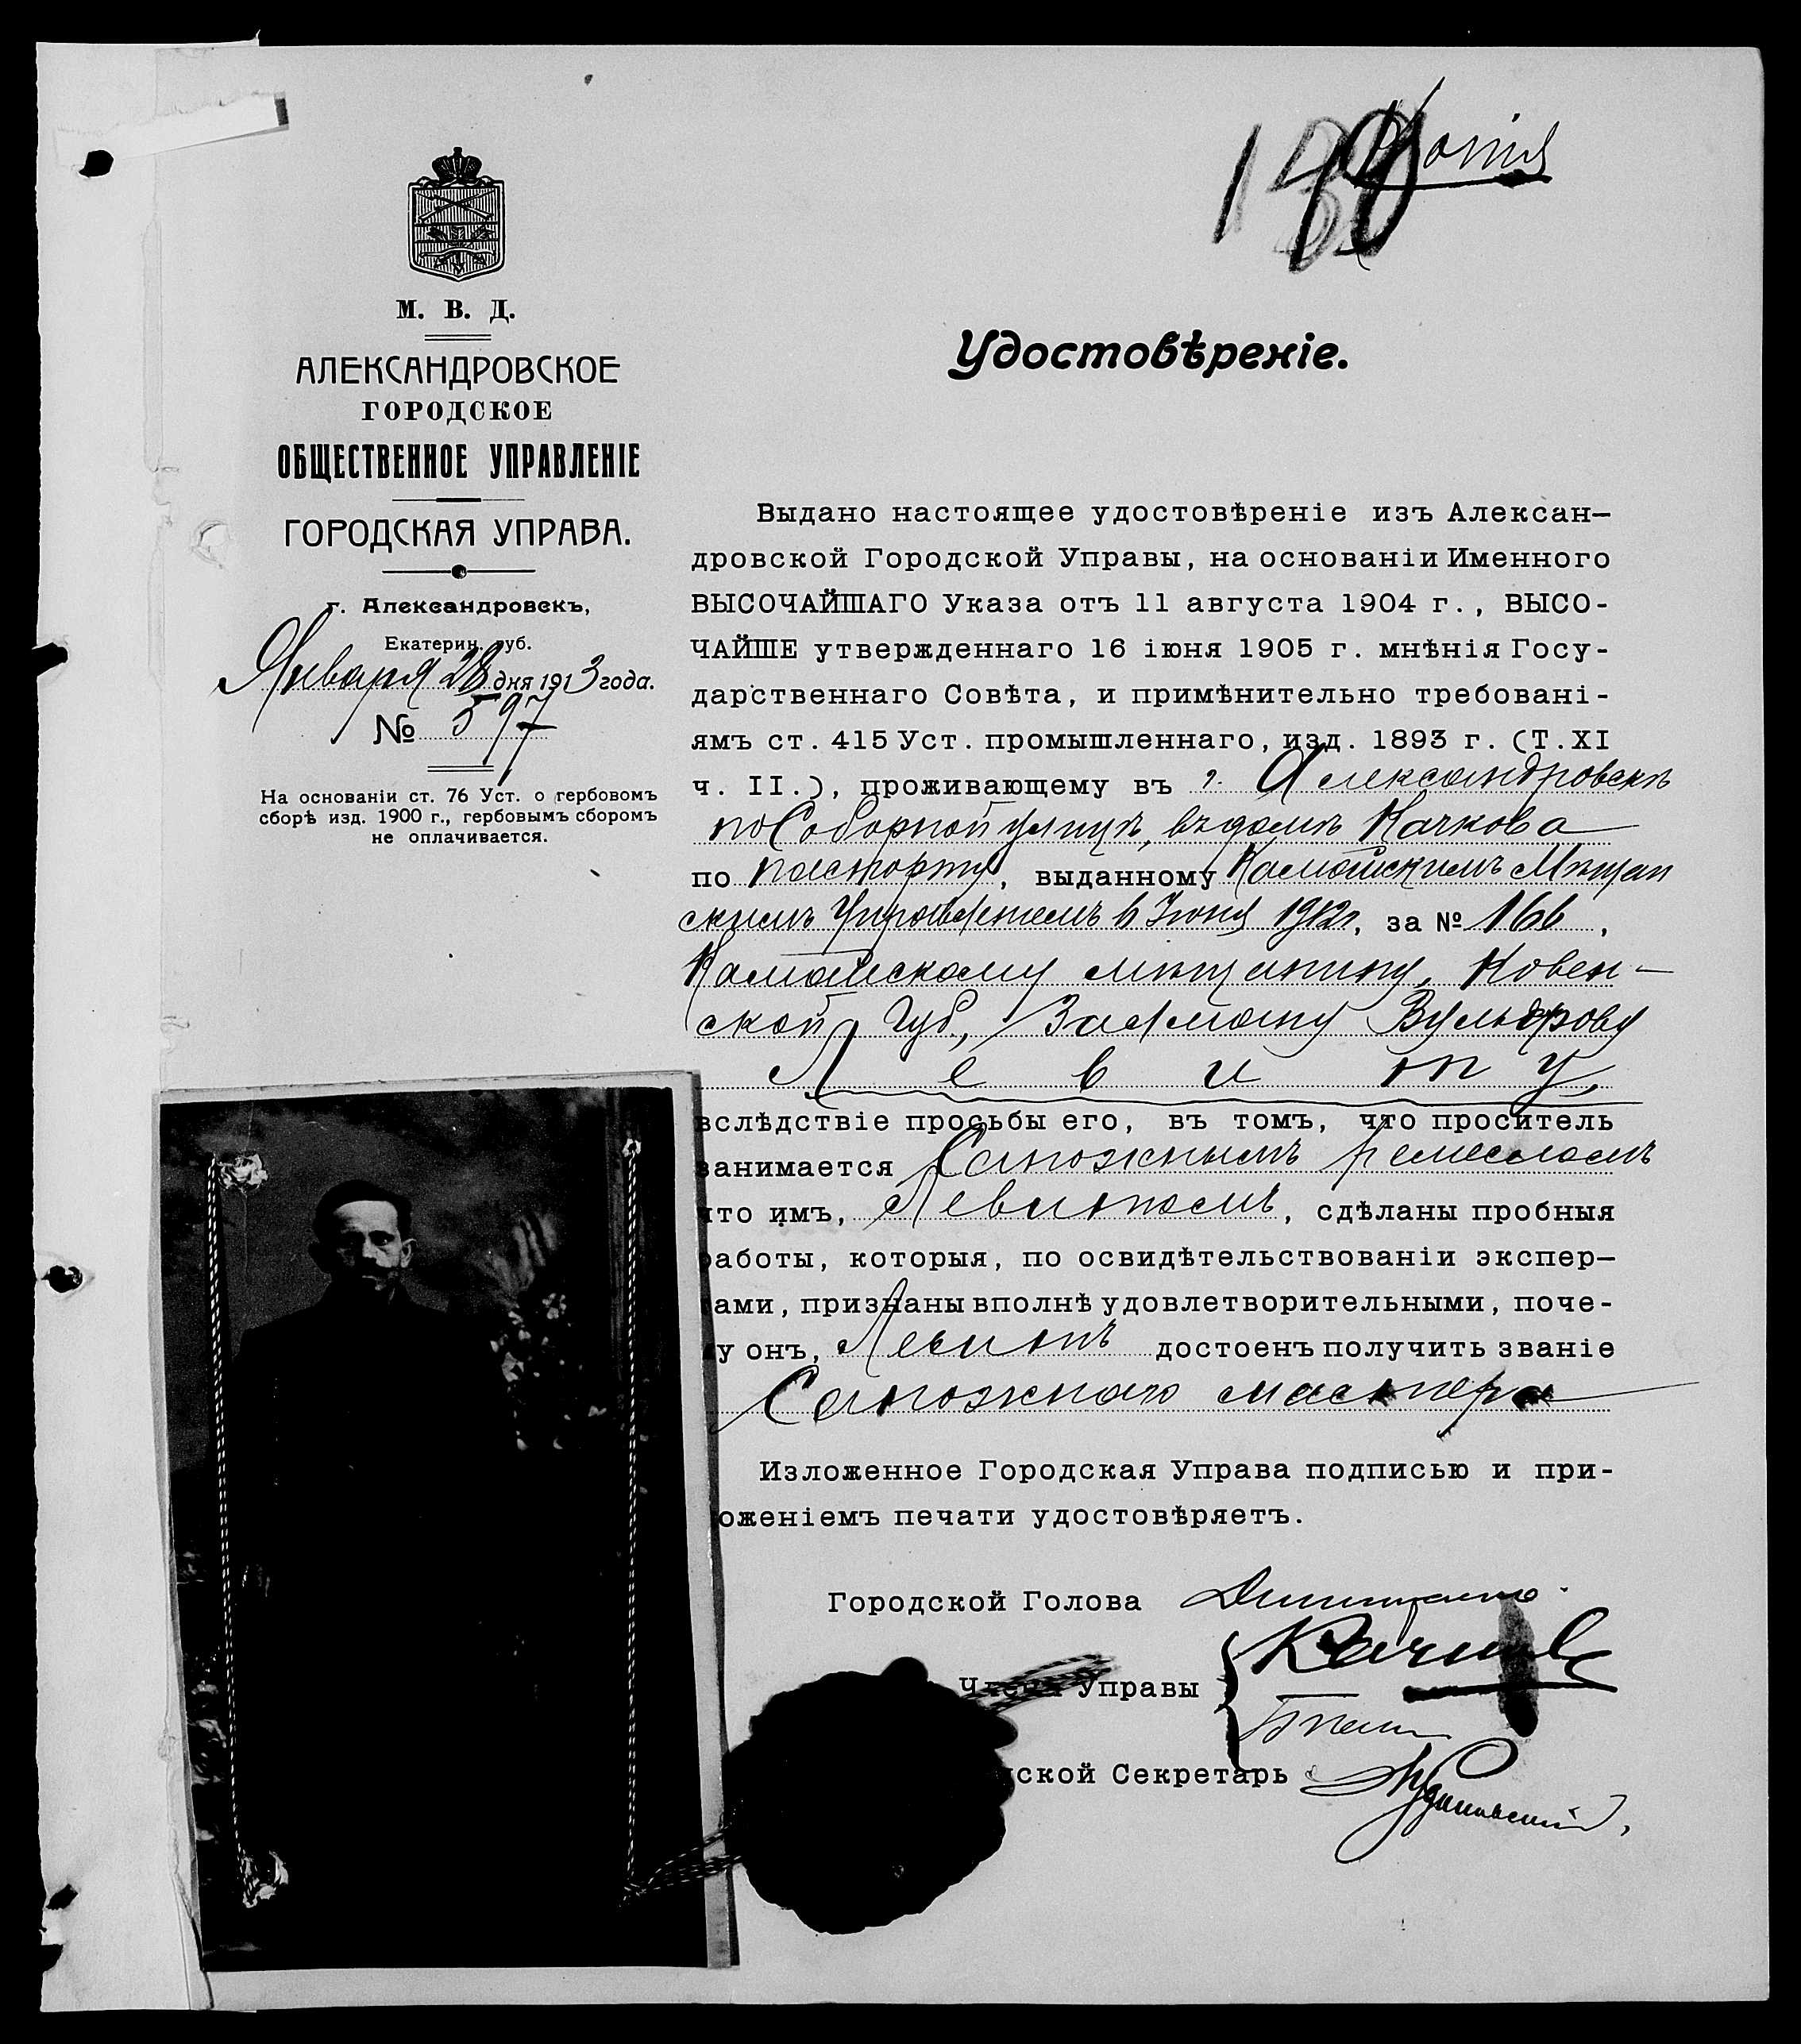 Копія
М. В. Д.
АЛЕКСАНДРОВСКОЕ
ГОРОДСКОЕ
ОБЩЕСТВЕННОЕ УПРАВЛЕНІЕ
ГОРОДСКАЯ УПРАВА.
г. Александровскъ,
Екатерин. губ.
Января 28 дня 1913 года.
№ 597
На основаніи ст. 76 Уст. о гербовомъ
сборѣ изд. 1900 г., гербовымъ сборомъ
не оплачивается.
Удостовѣреніе.
Выдано настоящее удостовѣреніе изъ Алексан-
дровской Городской Управы, на основаніи Именного
ВЫСОЧАЙШАГО Указа отъ 11 августа 1904 г., ВЫСО-
ЧАЙШЕ утвержденнаго 16 іюня 1905 г. мнѣнія Госу-
дарственнаго Совѣта, и примѣнительно требовані-
ямъ ст. 415 Уст. промышленнаго, изд. 1893 г. (Т. XI
ч. II.), проживающему въ г. Александровскѣ
по Соборной улицѣ, въ домѣ Качкова
по паспорту, выданному Камайскимъ Мѣщан
скимъ Управленіемъ 6 Іюня 1912 г., за № 166,
Камайскому мѣщанину, Ковен-
ской Губ., Залману Вульфову
Левину,
вслѣдствіе просьбы его, въ томъ, что проситель
занимается Сапожнымъ ремесломъ
что имъ, Левинымъ, сдѣланы пробныя
работы, которыя, по освидѣтельствованіи экспер-
тами, признаны вполнѣ удовлетворительными, поче-
му онъ, Левинъ достоенъ получить званіе
Сапожнаго мастера
Изложенное Городская Управа подписью и при-
ложеніемъ печати удостовѣряетъ.
Городской Голова
Члены Управы
ской Секретарь